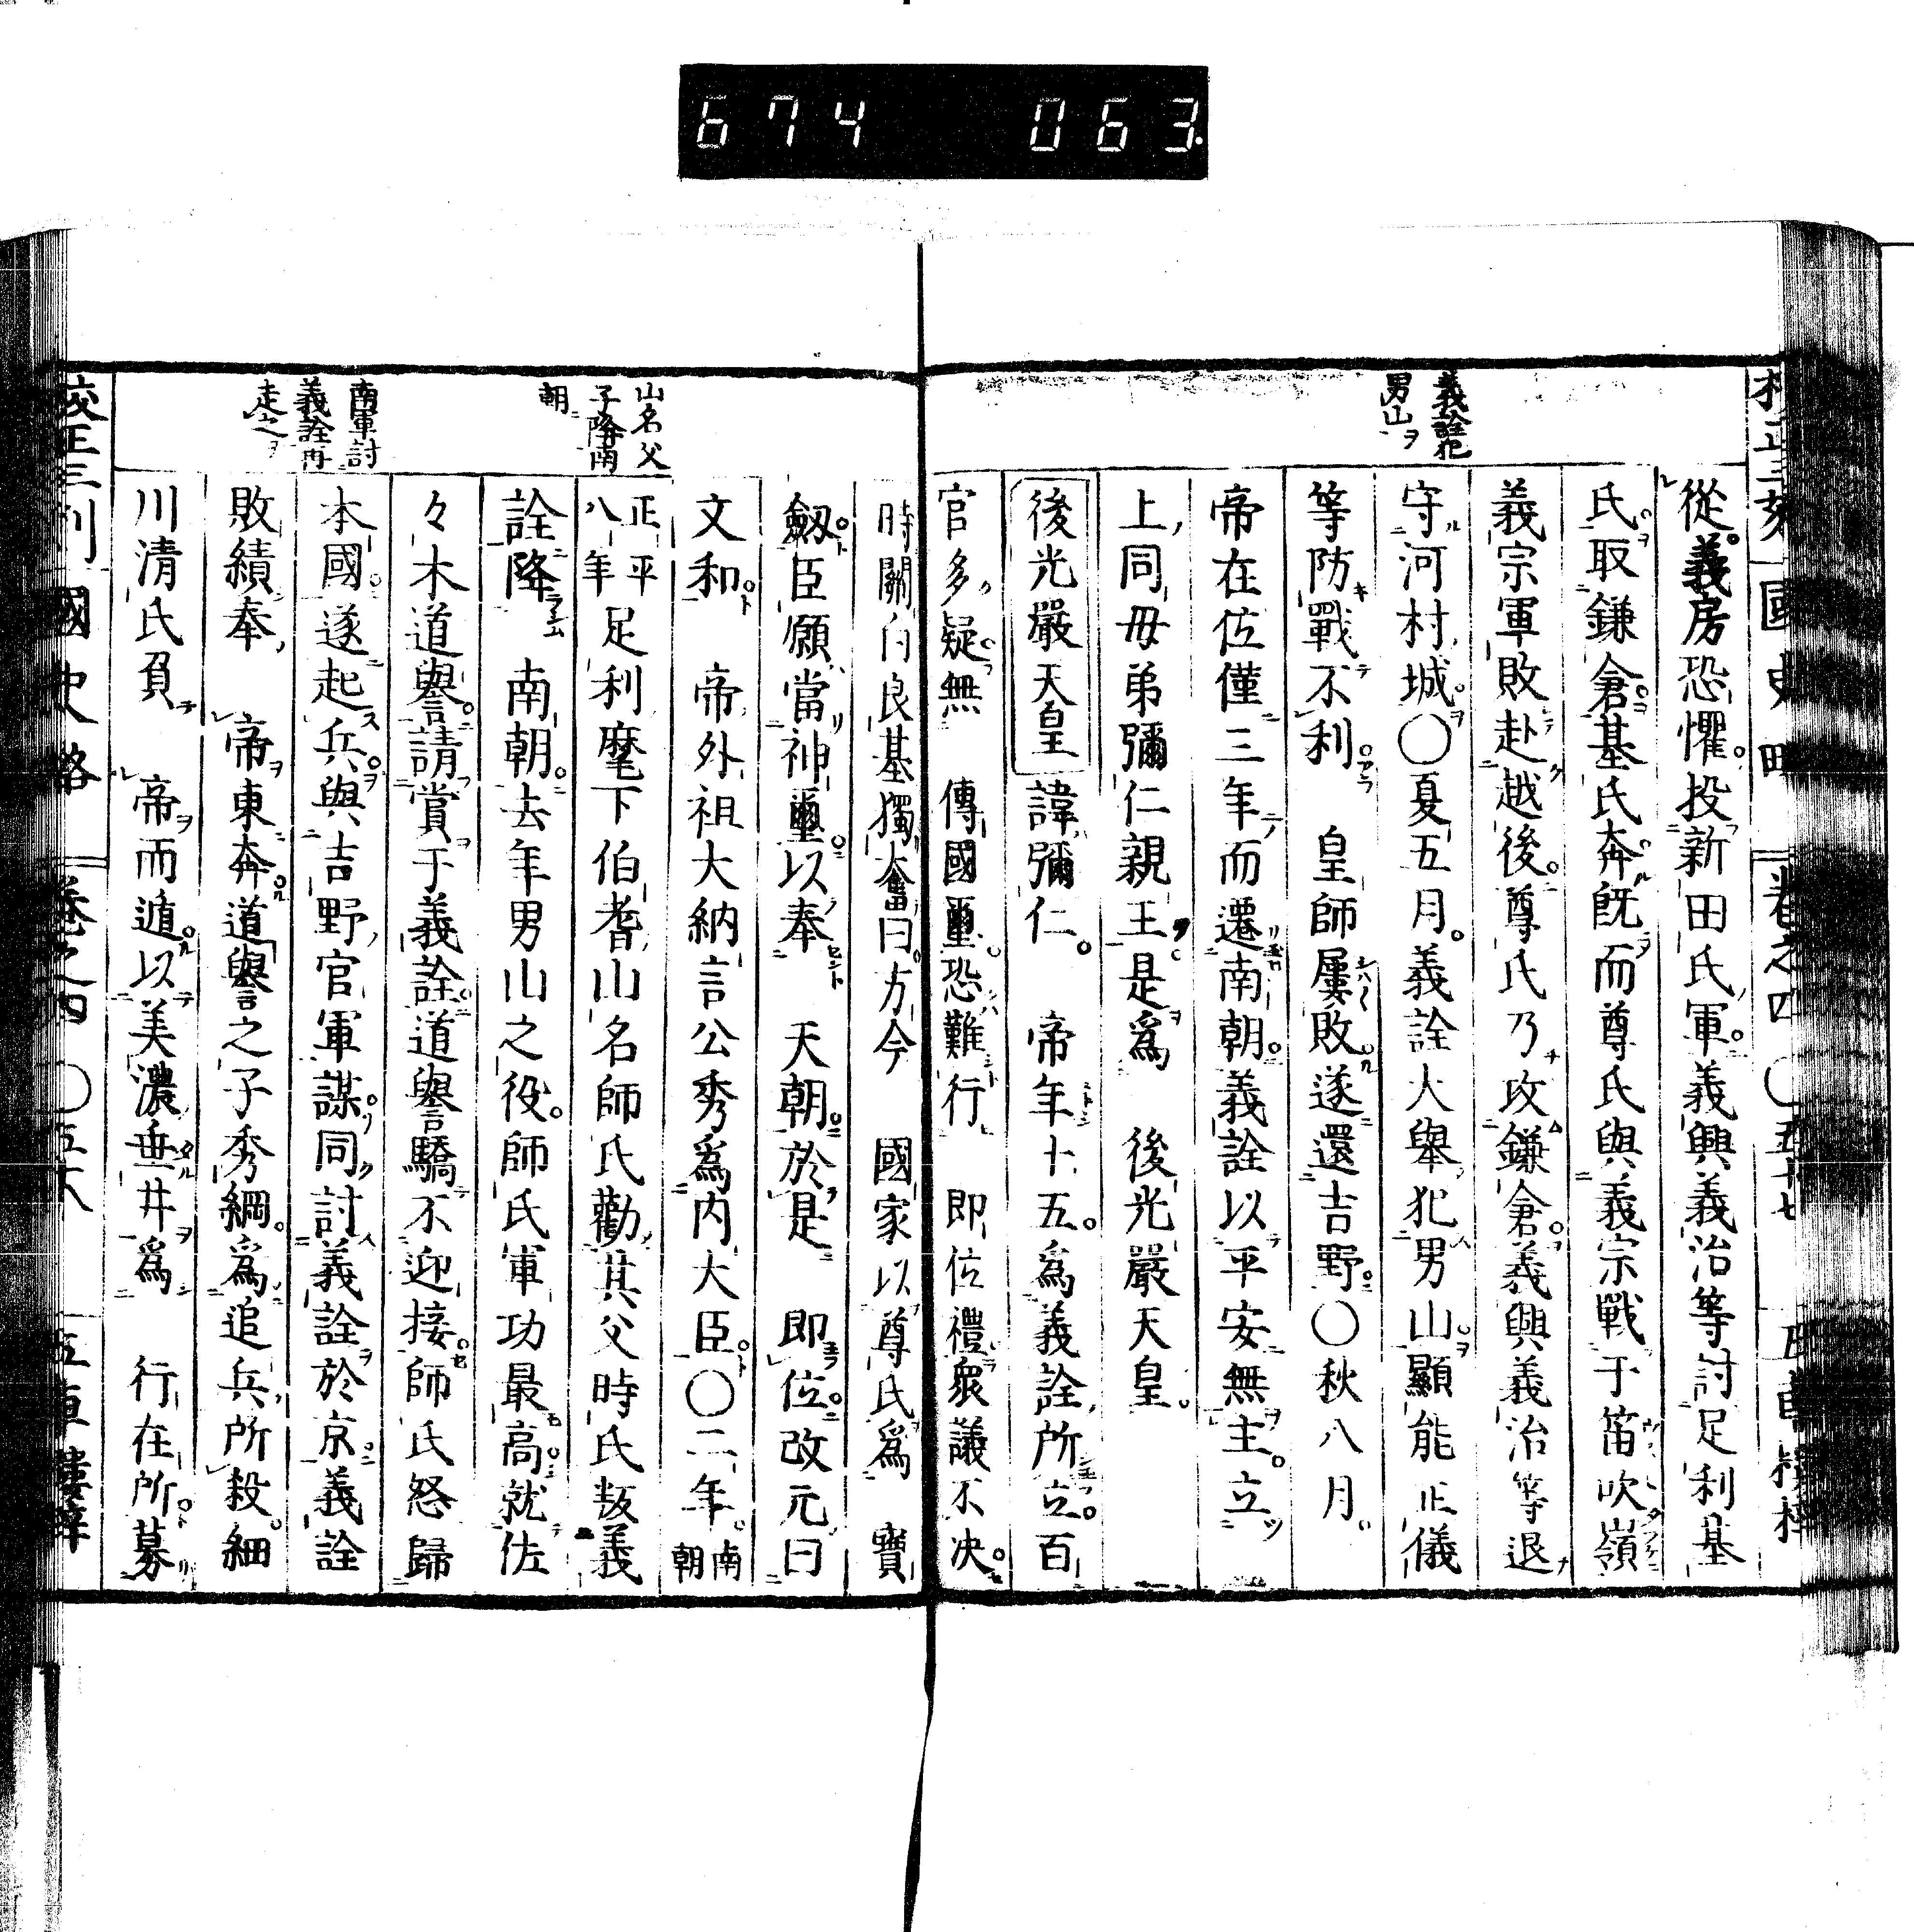 674 063
義詮犯
男山ヲ
從義房恐懼投新田氏軍義興義治等討足利基
氏取鎌倉基氏奔既而尊氏與義宗戰于笛吹嶺
義宗軍敗赴越後尊氏乃攻鎌倉義興義治等退
守河村城〇夏五月義詮大舉犯男山顯能正儀
等防戰不利　皇師屢敗遂還吉野〇秋八月
帝在位僅三年而遷南朝義詮以平安無主立
上同母弟彌仁親王是爲　後光嚴天皇
後光嚴天皇諱彌仁　帝年十五爲義詮所立百
官多疑無　傳國璽恐難行　即位禮衆議不決
山名父
子降南
朝
南軍討
義詮再
走之ヲ
時關白良基獨奮曰方今　國家以尊氏爲　寶
劔臣願當神璽以奉　天朝於是　即位改元曰
文和　帝外祖大納言公秀爲内大臣〇二年南朝
正平八年足利麾下伯耆山名師氏勸其父時氏叛義
詮降　南朝去年男山之役師氏軍功最高就佐
々木道譽請賞于義詮道譽驕不迎接師氏怒歸
本國遂起兵與吉野官軍謀同討義詮於京義詮
敗績奉　帝東奔道譽之子秀綱爲追兵所殺細
川清氏負　帝而遁以美濃垂井爲　行在所募
國史略　卷之四